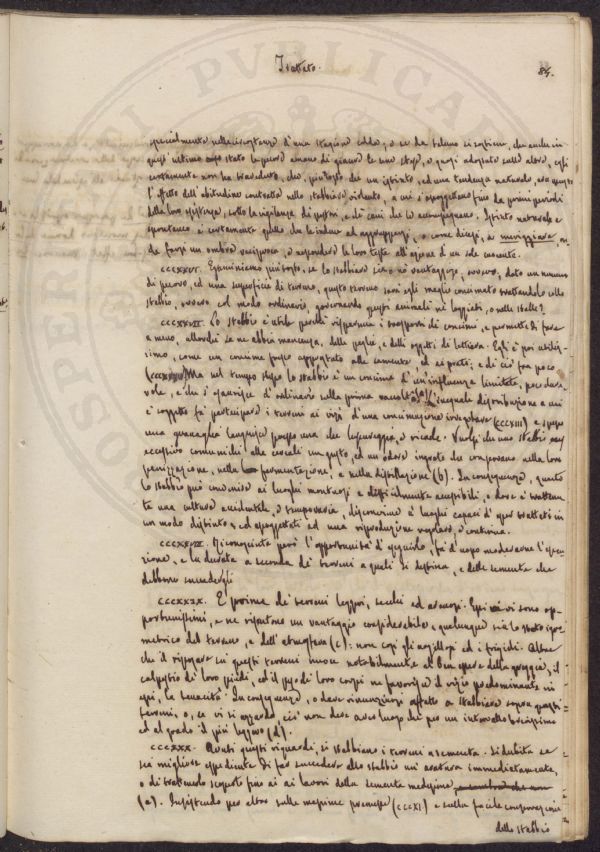 Trattato.
84.
specialmente nella circostanza d'una stagione calda, e se da taluno si sostiene, che anche in
quest'ultimo stato le pecore amano di giacere le une stese, e quasi addossate sulle altre, egli
certamente non ha traveduto, che, piuttosto che un istinto, ed una tendenza naturale, era questo
l'effetto dell'abitudine contratta nello stabbiare violento, a cui s'assoggettano fino da primi periodi
della loro esistenza, sotto la vigilanza di pastori, e de' cani che le accompagnano. Istinto naturale e
spontaneo è certamente quello che le induce ad aggrupparsi, o come dicesi, a meriggiare, on
de farsi un ombra reciproca, e nascondere le loro teste all'azione d'un sole cocente.
CCCXXVI. Esaminiamo piuttosto, se lo stabbiare sia o no vantaggioso, ovvero, dato un numero
di pecore, ed una superficie di terreno, questo terreno sarà egli meglio concimato trattandolo collo
stabbio, ovvero col modo ordinario, governando questi animali ne' loggiati, o nelle stalle?
CCCXXVII. Lo stabbio è utile perchè risparmia i trasporti di concimi, e permette di fare
a meno, allorchè se ne abbia mancanza, delle paglie, e delli oggetti di lettiera. Egli è poi utilis-
simo, come un concime proprio appropriato alle semente ed ai prati; e di ciò fra poco
Ma nel tempo stesso lo stabbio è un concime d'un'influenza limitata, poco dure-
vole, e che s'esaurisce d'ordinario colla prima raccolta. L'ineguale distribuzione a cui
è soggetto fa partecipare i terreni ai vizi d'una concimazione irregolare (CCCXIII) e spesso
una gramaglia languisce presso una che lussureggia, e ricade. Vuolsi che uno stabbio
eccessivo comunichi alle cereali un gusto, ed un odore ingrato che conservano nella loro
panizzazione, nella fermentazione, e nella distillazione (b). In conseguenza, quanto
lo stabbio può convenire ai luoghi montuosi e difficilmente accessibili, e dove è trattenu-
ta una cultura accidentale, e temporaria, disconviene a' luoghi capaci d'esser trattati in
un modo distinto, ed assoggettati ad una riproduzione regolare e continua.
CCCXXVIII. Riconosciuta però l'opportunità d'eseguirlo, fa d'uopo moderarne l'esecu-
zione, e la durata a seconda de' terreni a quali si destina, e delle semente che
debbono succedergli
CCCXXIX. E prima de' terreni leggeri, secchi ed arenosi. Essi vi sono op-
portunissimi, e ne risentono un vantaggio considerabile, qualunque sia lo stato igro-
metrico del terreno, e dell'atmosfera (c): non così gli argillosi ed i frigidi. Oltre
che il riposare in questi terreni nuoce notabilmente al ben essere della greggia, il
calpestio de' loro piedi, ed il peso de' loro corpi ne favorisce il vizio predominante in
essi, la tenacità. In conseguenza, o deve rinunziarsi affatto a stabbiare sopra questi
terreni, o, se vi si azzarda, ciò non deve aver luogo che per un intervallo brevissimo
ed al grado il più leggero (d).
CCCXXX. Avuti questi riguardi, si stabbiano i terreni a sementa. Si dubita se
sia migliore espediente di far succedere allo stabbio un'aratura immediatamente,
o di trattenerlo scoperto fino ai lavori della sementa medesima
(e). Insistendo per altro sulle massime premesse (CCCXI) e sulla facile conservazione
dello stabbio